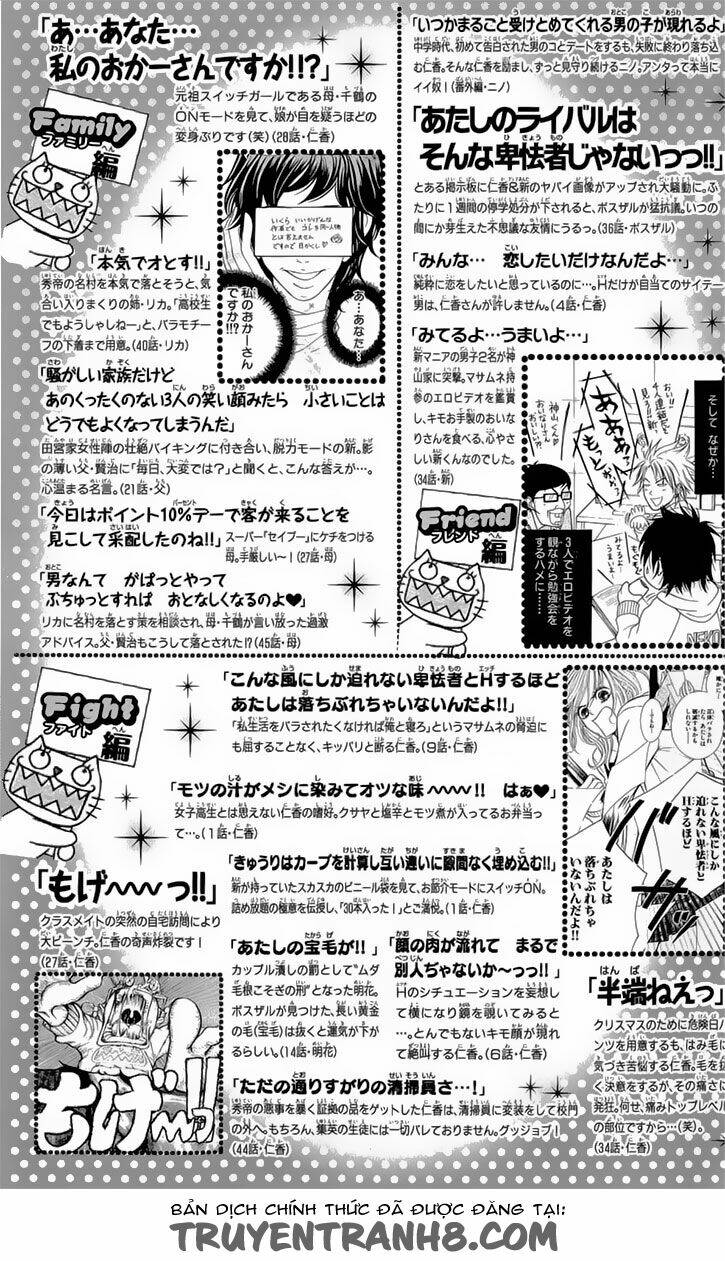 「あ…あなた…
私のおかーさんですか!!?」
元祖スイッチガールである母・千鶴の
ONモードを見て、娘が目を疑うほどの
変身ぶりです(笑)(28話・仁香)
Family
ファミリー
編
あ…あなた…
私のおかーさん
ですか!!?
「本気でオとす!!」
秀帝の名村を本気で落とそうと、気
合い入りまくりの姉・リカ。「高校生
でもようしゃしねー」と、バラモチー
フの下着まで用意。(40話・リカ)
「騒がしい家族だけど
あのくったくのない3人の笑い顔みたら 小さいことは
どうでもよくなってしまうんだ」
田宮家女性陣の壮絶バイキングに付き合い、脱力モードの新。影
の薄い父・賢治に「毎日、大変では?」と聞くと、こんな答えが…。
心温まる名言。(21話・父)
「今日はポイント10%デーで客が来ることを
見こして采配したのね!!」
スーパー「セイブー」にケチをつける
母。手厳しい〜!(27話・母)
「男なんて がばっとやって
ぶちゅっとすれば おとなしくなるのよ♥」
リカに名村を落とす策を相談され、母・千鶴が言い放った過激
アドバイス。父・賢治もこうして落とされた!?(45話・母)
「いつかまるごと受けとめてくれる男の子が現れるよ
中学時代、初めて告白された男のコとデートをするも、失敗に終わり落ち込
む仁香。そんな仁香を励まし、ずっと見守り続けるニノ。アンタって本当に
イイ奴!(番外編・ニノ)
「あたしのライバルは
そんな卑怯者じゃないっっ!!」
とある掲示板に仁香&新のヤバイ画像がアップされ大騒動に。ふ
たりに1週間の停学処分が下されると、ボスザルが猛抗議。いつの
間にか芽生えた不思議な友情にうるっ。(36話・ボスザル)
「みんな… 恋したいだけなんだよ…」
純粋に恋をしたいと思っているのに…。Hだけが目当てのサイテー
男は、仁香さんが許しません。(4話・仁香)
「みてるよ…うまいよ…」
新マニアの男子2名が神
山家に突撃。マサムネ持
参のエロビデオを鑑賞
し、キモお手製のおいな
りさんを食べる、心やさ
しい新くんなのでした。
(34話・新)
Friend
フレンド
編
そして なぜか…
神山くん
ああああ
もっと
みてるよ…
うまいよ…
3人でエロビデオを
観ながら勉強会を
するハメに……
Fight
ファイト
編
「こんな風にしか迫れない卑怯者とHするほど
あたしは落ちぶれちゃいないんだよ!!」
「私生活をバラされたくなければ俺と寝ろ」というマサムネの脅迫に
も屈することなく、キッパリと断る仁香。(9話・仁香)
こんな風にしか
迫れない卑怯者と
Hするほど
あたしは
落ちぶれちゃ
いないんだよ!!
「モツの汁がメシに染みてオツな味〜〜〜!! はぁ♥」
女子高生とは思えない仁香の嗜好。クサヤと塩辛とモツ煮が入ってるお弁当
って…。(1話・仁香)
「きゅうりはカーブを計算し互い違いに隙間なく埋め込む!!」
新が持っていたスカスカのビニール袋を見て、お節介モードにスイッチON。
詰め放題の極意を伝授し、「30本入った!」とご満悦。(1話・仁香)
「もげ〜〜〜っ!!」
クラスメイトの突然の自宅訪問により
大ピーンチ。仁香の奇声炸裂です!
(27話・仁香)
もげ〜〜っ!!
「あたしの宝毛が!!」
カップル潰しの罰として“ムダ
毛根こそぎの刑”となった明花。
ボスザルが見つけた、長い黄金
の毛(宝毛)は抜くと運気が下が
るらしい。(14話・明花)
「顔の肉が流れて まるで
別人ぢゃないか〜っっ!!」
Hのシチュエーションを妄想し
て横になり鏡を覗いてみると
…。とんでもないキモ顔が現れ
て絶叫する仁香。(6話・仁香)
「ただの通りすがりの清掃員さ…!」
秀帝の悪事を暴く証拠の品をゲットした仁香は、清掃員に変装をして校門
の外へ。もちろん、集英の生徒には一切バレておりません。グッジョブ!
(44話・仁香)
「半端ねえっ
クリスマスのために危険日パ
ンツを用意するも、はみ毛に
気づき苦悩する仁香。毛を抜
く決意をするが、その痛さに
発狂。何せ、痛みトップレベル
の部位ですから…(笑)。
(34話・仁香)
BẢN DỊCH CHÍNH THỨC ĐÃ ĐƯỢC ĐĂNG TẠI:
TRUYENTRANH8.COM